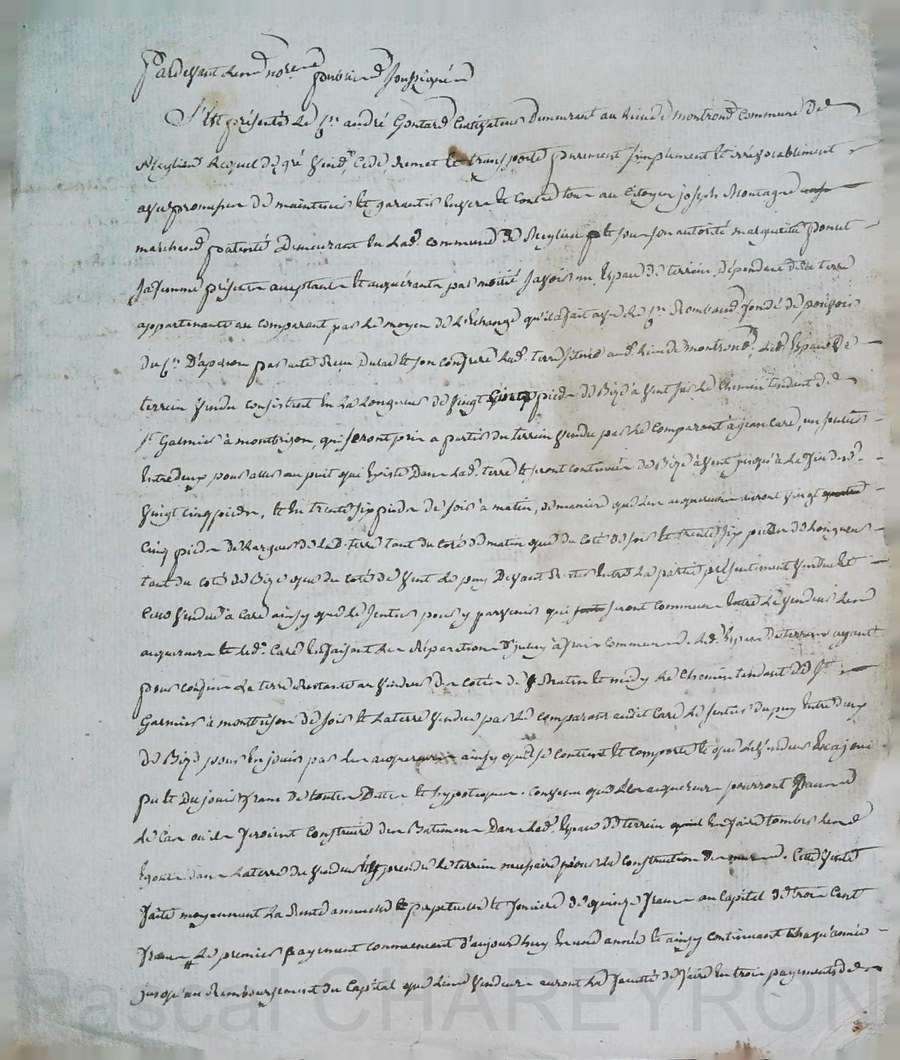 Pardevant les no.res publics soussignés
S'est présenté le C.en andré Gontard Cultivateur Demeurant au lieu de montrond Commune de
Meylieu Lequel de gré vend, Cede, remet et transporte purement simplement et irrévocablement
avec promesse de maintenir et garantir envers et Contre tous au Citoyen joseph Montagne
marchand patenté Demeurant en lad. commune de Meylieu et sous son autorité marguerite poncet
sa femme présente acceptante et acquérante par moitié savoir un Espace de terrein dépendant d'une terre
appartenante au comparant par le moyen de l'Echange qu'il a fait avec le C.en Rombaud fondé de pouvoir
du C.en D'apchon par acte Reçu Dulac et son confrere lad. terre située aud. lieu de montrond, led. Espace de
terrein vendu consistant en la longueur de vingt Cinq pieds de Bize à vent sur le Chemin tendant de
S.t Galmier à montbrison, qui seront pris a partir du terrein vendu par le Comparant à jean Caré, un sentier
entredeux pour aller au puit qui Existe Dans lad. terre et seront continués de Bize à vent jusqu'à la fin desd.
vingt cinq pieds, et en trente six pieds de soir à matin, de maniere que les acquereurs auront vingt
Cinq pieds de largeur de lad. terre tant du coté de matin que du coté de soir et trente six pieds de longueur
tant du coté de Bize que du coté de vent le puy Devant Rester Entre la partie présentement vendue et
Celle vendue à Caré ainsy que le Sentier pour y parvenir qui seront communs Entre le vendeur les
acquereurs et led. Caré En faisant les Réparations d'iceux à frais Communs. led. Espace de terrein ayant
pour confins la terre Restante au vendeur des cotés de Matin et midy le Chemin tendant de S.t
Galmier à montbrison de soir et la terre vendue par le comparant audit Caré le sentier du puy Entredeux
de Bize pour En jouir par les acquereurs ainsy qu'il se contient et comporte et que le vendeur En a joui
pu et du jouir franc de toutes Dettes et hypoteques. Convenu que les acquereurs pourront
le Cas ou ils feroient Construire des Batimens Dans led. Espace de terrein En faire tomber les
Egouts dans la terre du vendeur et prendre le terrein necessaire pour la construction des murs. Cette vente
faite moyennant la Rente annuelle et perpetuelle et fonciere de quinze francs au Capital de trois Cent
francs le premier payement commencant d'aujourdhuy En une année et ainsy continuant chaqu'année
jusqu'au Remboursement du Capital que les vendeurs auront la faculté de faire En trois payements de
Pascal CHAREYRON